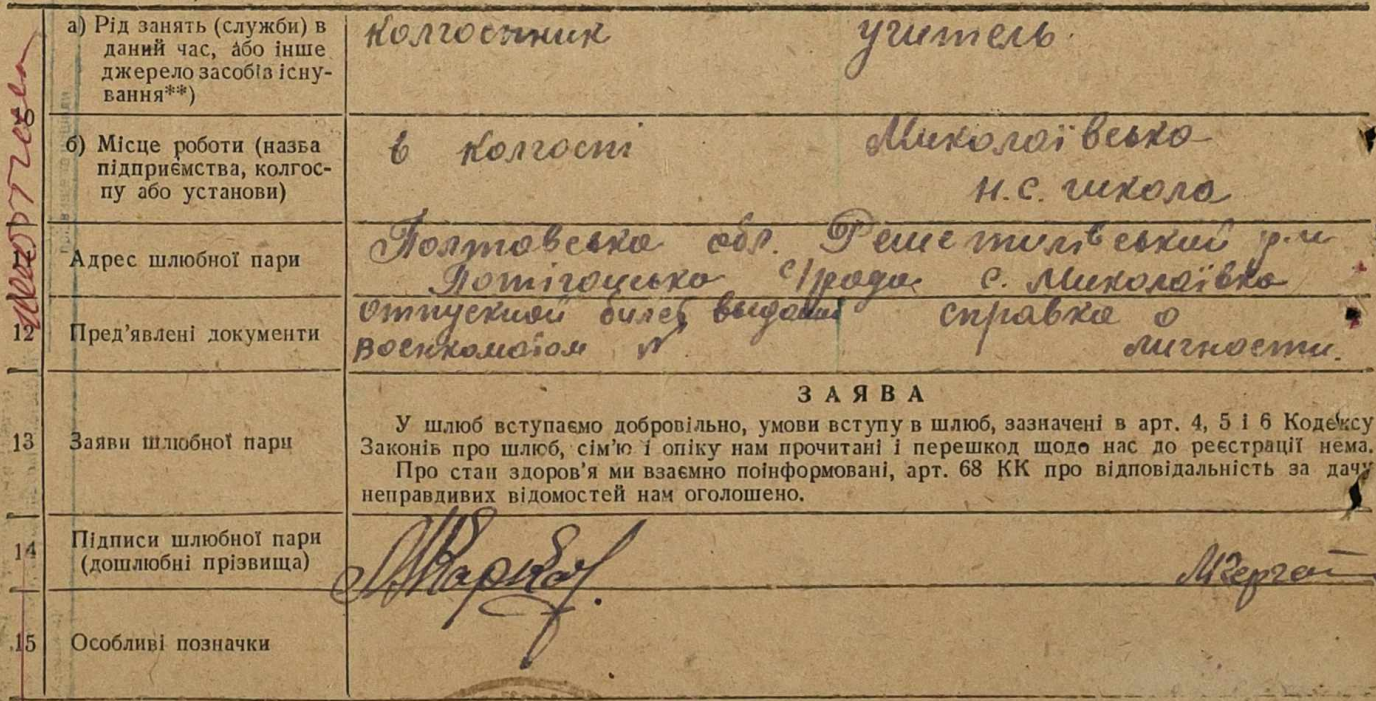 а) Рід занять (служби) в
даний час, або інше
джерело засобів існу-
вання**)
колгоспник учитель
б) Місце роботи (назва
підприємства, колгос-
пу або установи)
в колгоспі Миколаївська
н.с. школа
Адрес шлюбної пари
Полтавська обл. Решетилівський р-н
с/рада с. Миколаївка
12 Пред'явлені документи
отпускной билет выдан справка о
военкоматом личности.
13 Заяви шлюбної пари
ЗАЯВА
У шлюб вступаємо добровільно, умови вступу в шлюб, зазначені в арт. 4, 5 і 6 Кодексу
Законів про шлюб, сім'ю і опіку нам прочитані і перешкод щодо нас до реєстрації нема.
Про стан здоров'я ми взаємно поінформовані, арт. 68 КК про відповідальність за дачу
неправдивих відомостей нам оголошено.
14 Підписи шлюбної пари
(дошлюбні прізвища)
15 Особливі позначки